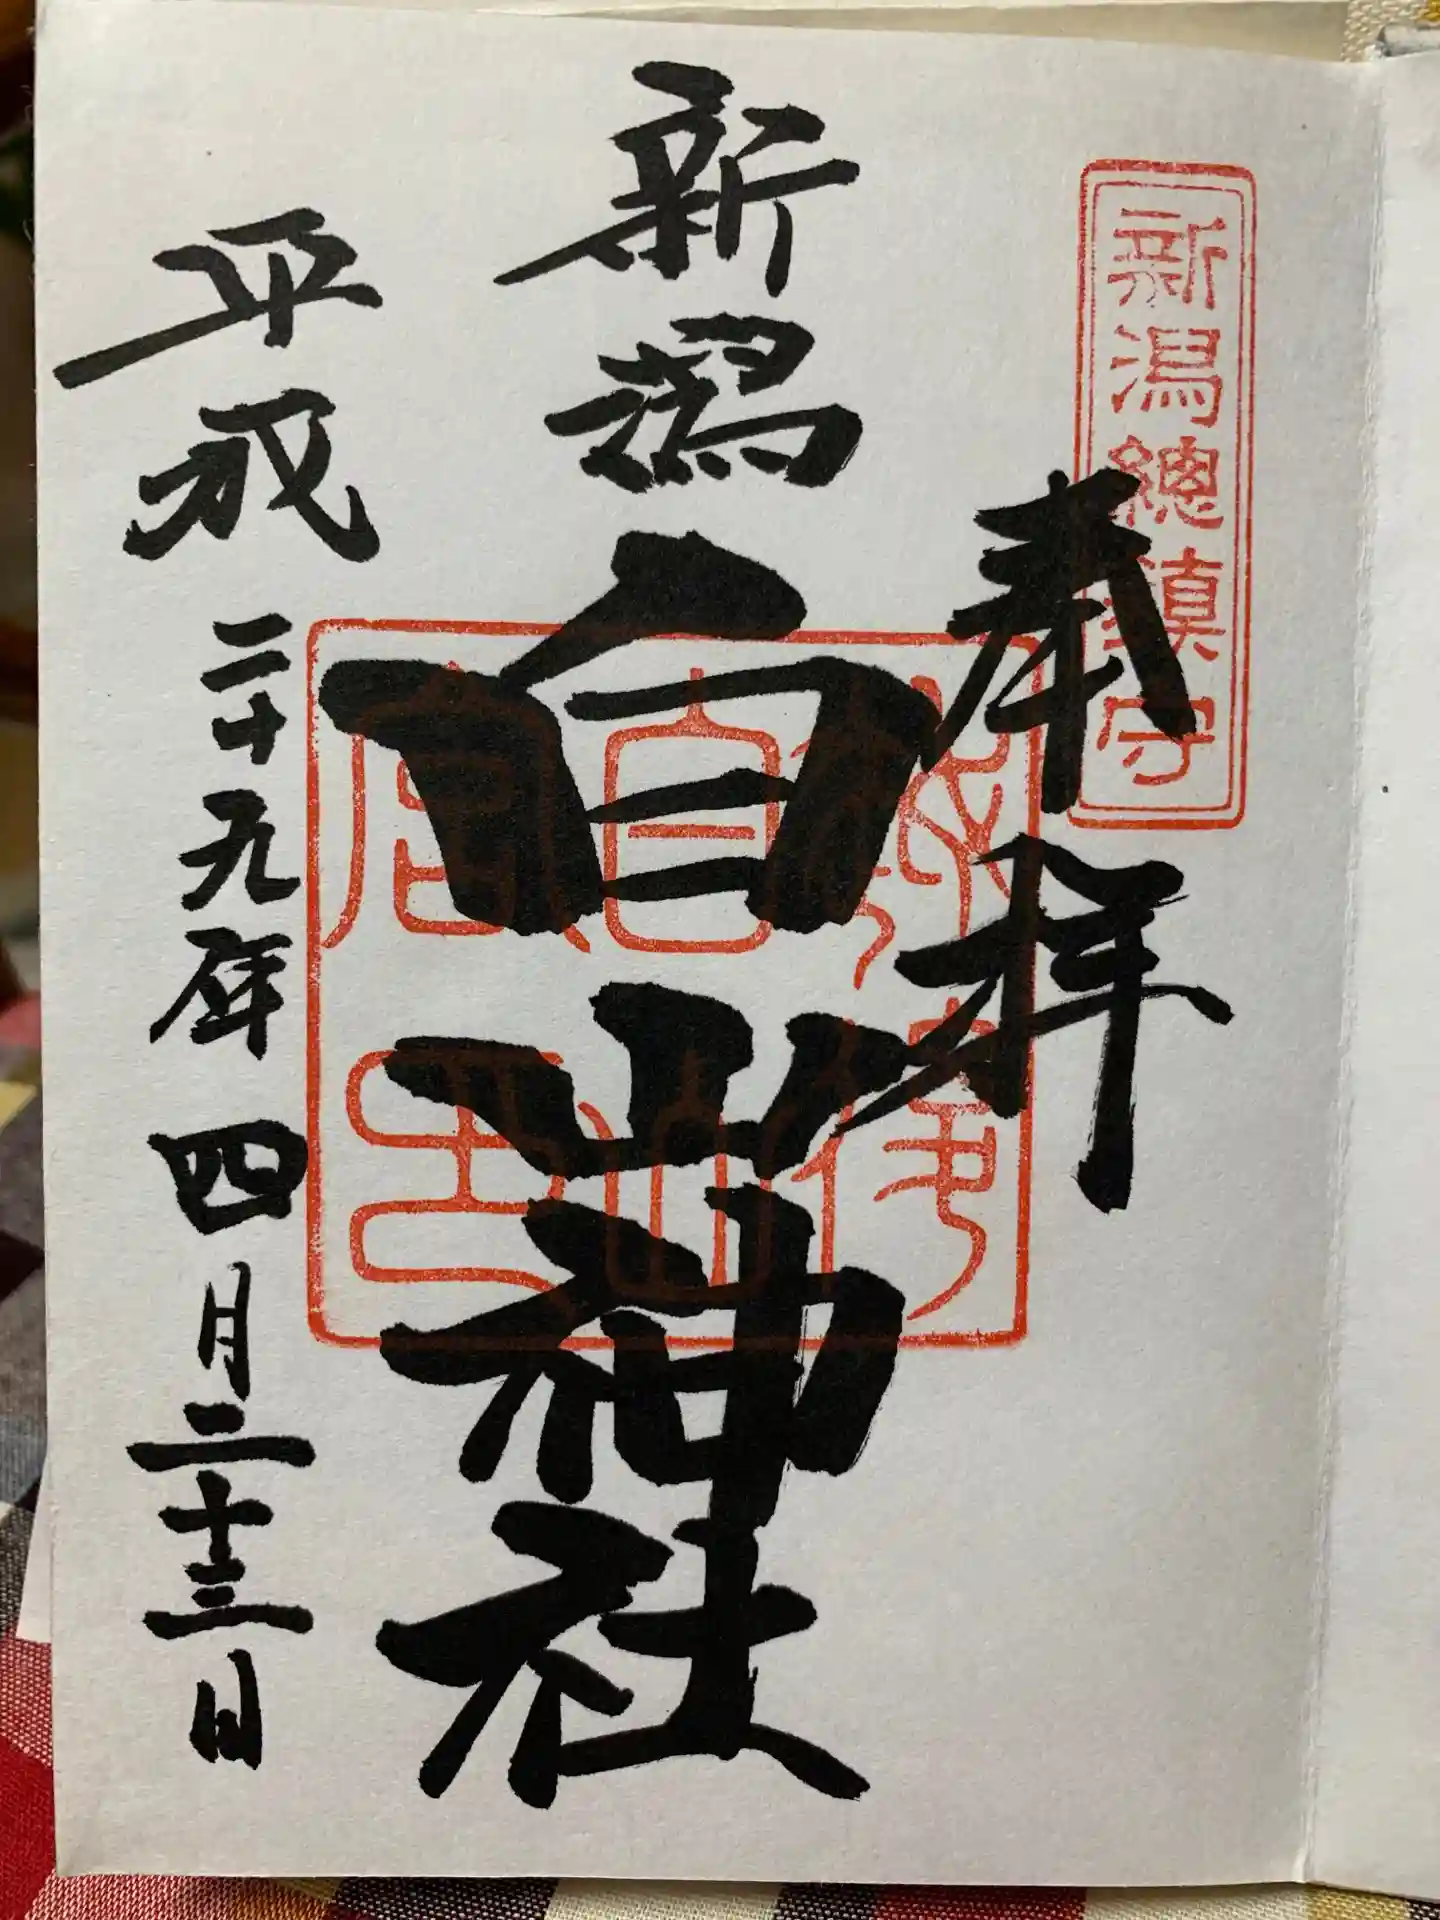 新潟總鎮守
奉拝
新潟白山神社
平成二十九年四月二十三日